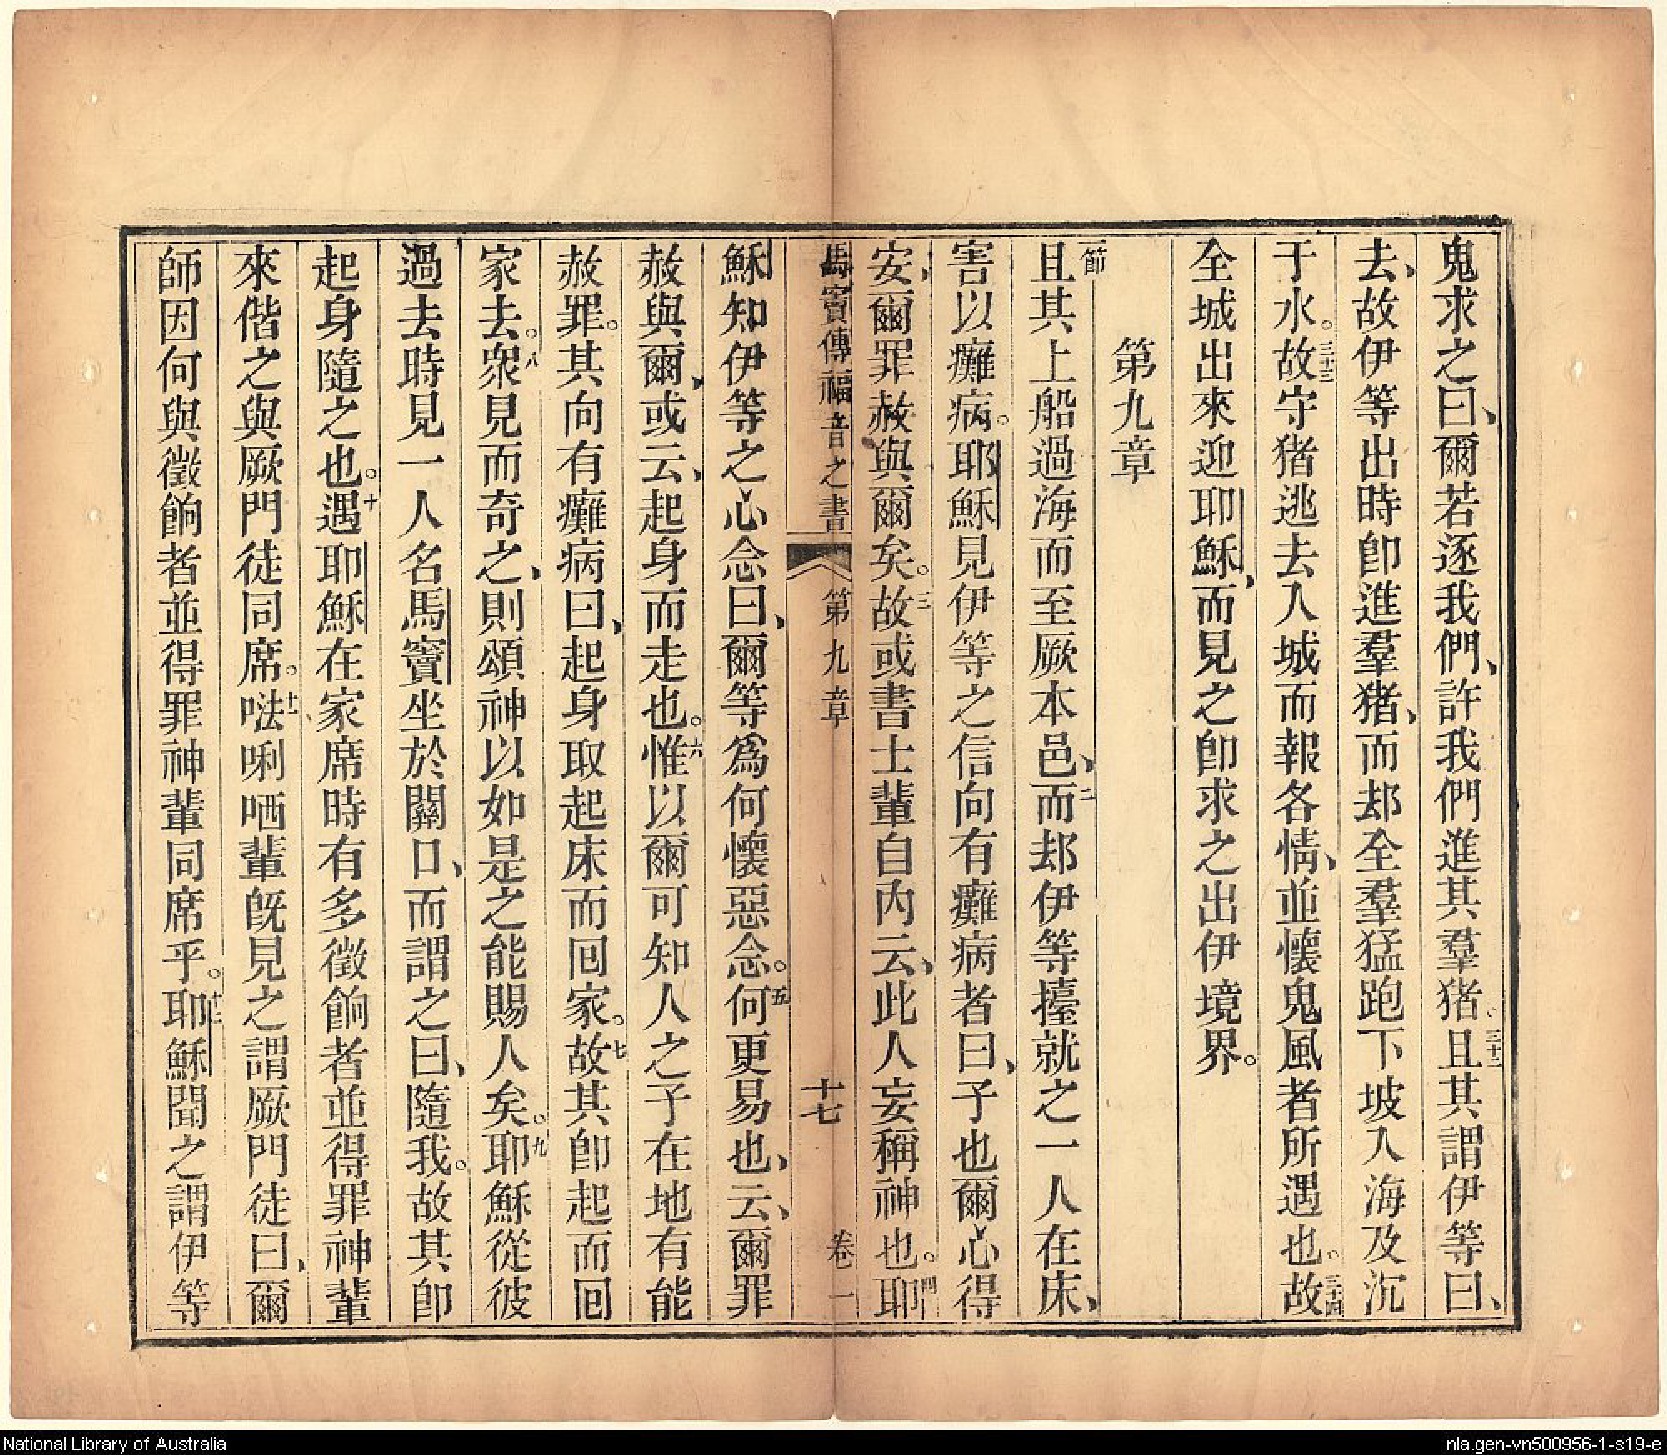 鬼求之曰、爾若逐我們、許我們進其羣猪。三十二且其謂伊等曰、
去、故伊等出時卽進羣猪、而却全羣猛跑下坡入海及沉
于水。三十三故守猪逃去入城而報各情、並懷鬼風者所遇也。三十四故
全城出來迎耶穌、而見之卽求之出伊境界。
第九章
一節且其上船過海而至厥本邑、二而却伊等擡就之一人在床、
害以癱病。耶穌見伊等之信向有癱病者曰、子也爾心得
安、爾罪赦與爾矣。三故或書士輩自內云、此人妄稱神也。四耶
馬竇傳福音之書 第九章 十七 卷一
穌知伊等之心念曰、爾等爲何懷惡念。五何更易也、云、爾罪
赦與爾、或云、起身而走也。六惟以爾可知人之子在地有能
赦罪。其向有癱病曰、起身取起床而回家。七故其卽起而回
家去。八衆見而奇之、則頌神以如是之能賜人矣。九耶穌從彼
過去時見一人名馬竇坐於關口、而謂之曰、隨我。故其卽
起身隨之也。十遇耶穌在家席時有多徵餉者並得罪神輩
來偕之與厥門徒同席。十一𠵽唎哂輩旣見之謂厥門徒曰、爾
師因何與徵餉者並得罪神輩同席乎。十二耶穌聞之謂伊等
National Library of Australia
nla.gen-vn500956-1-s19-e